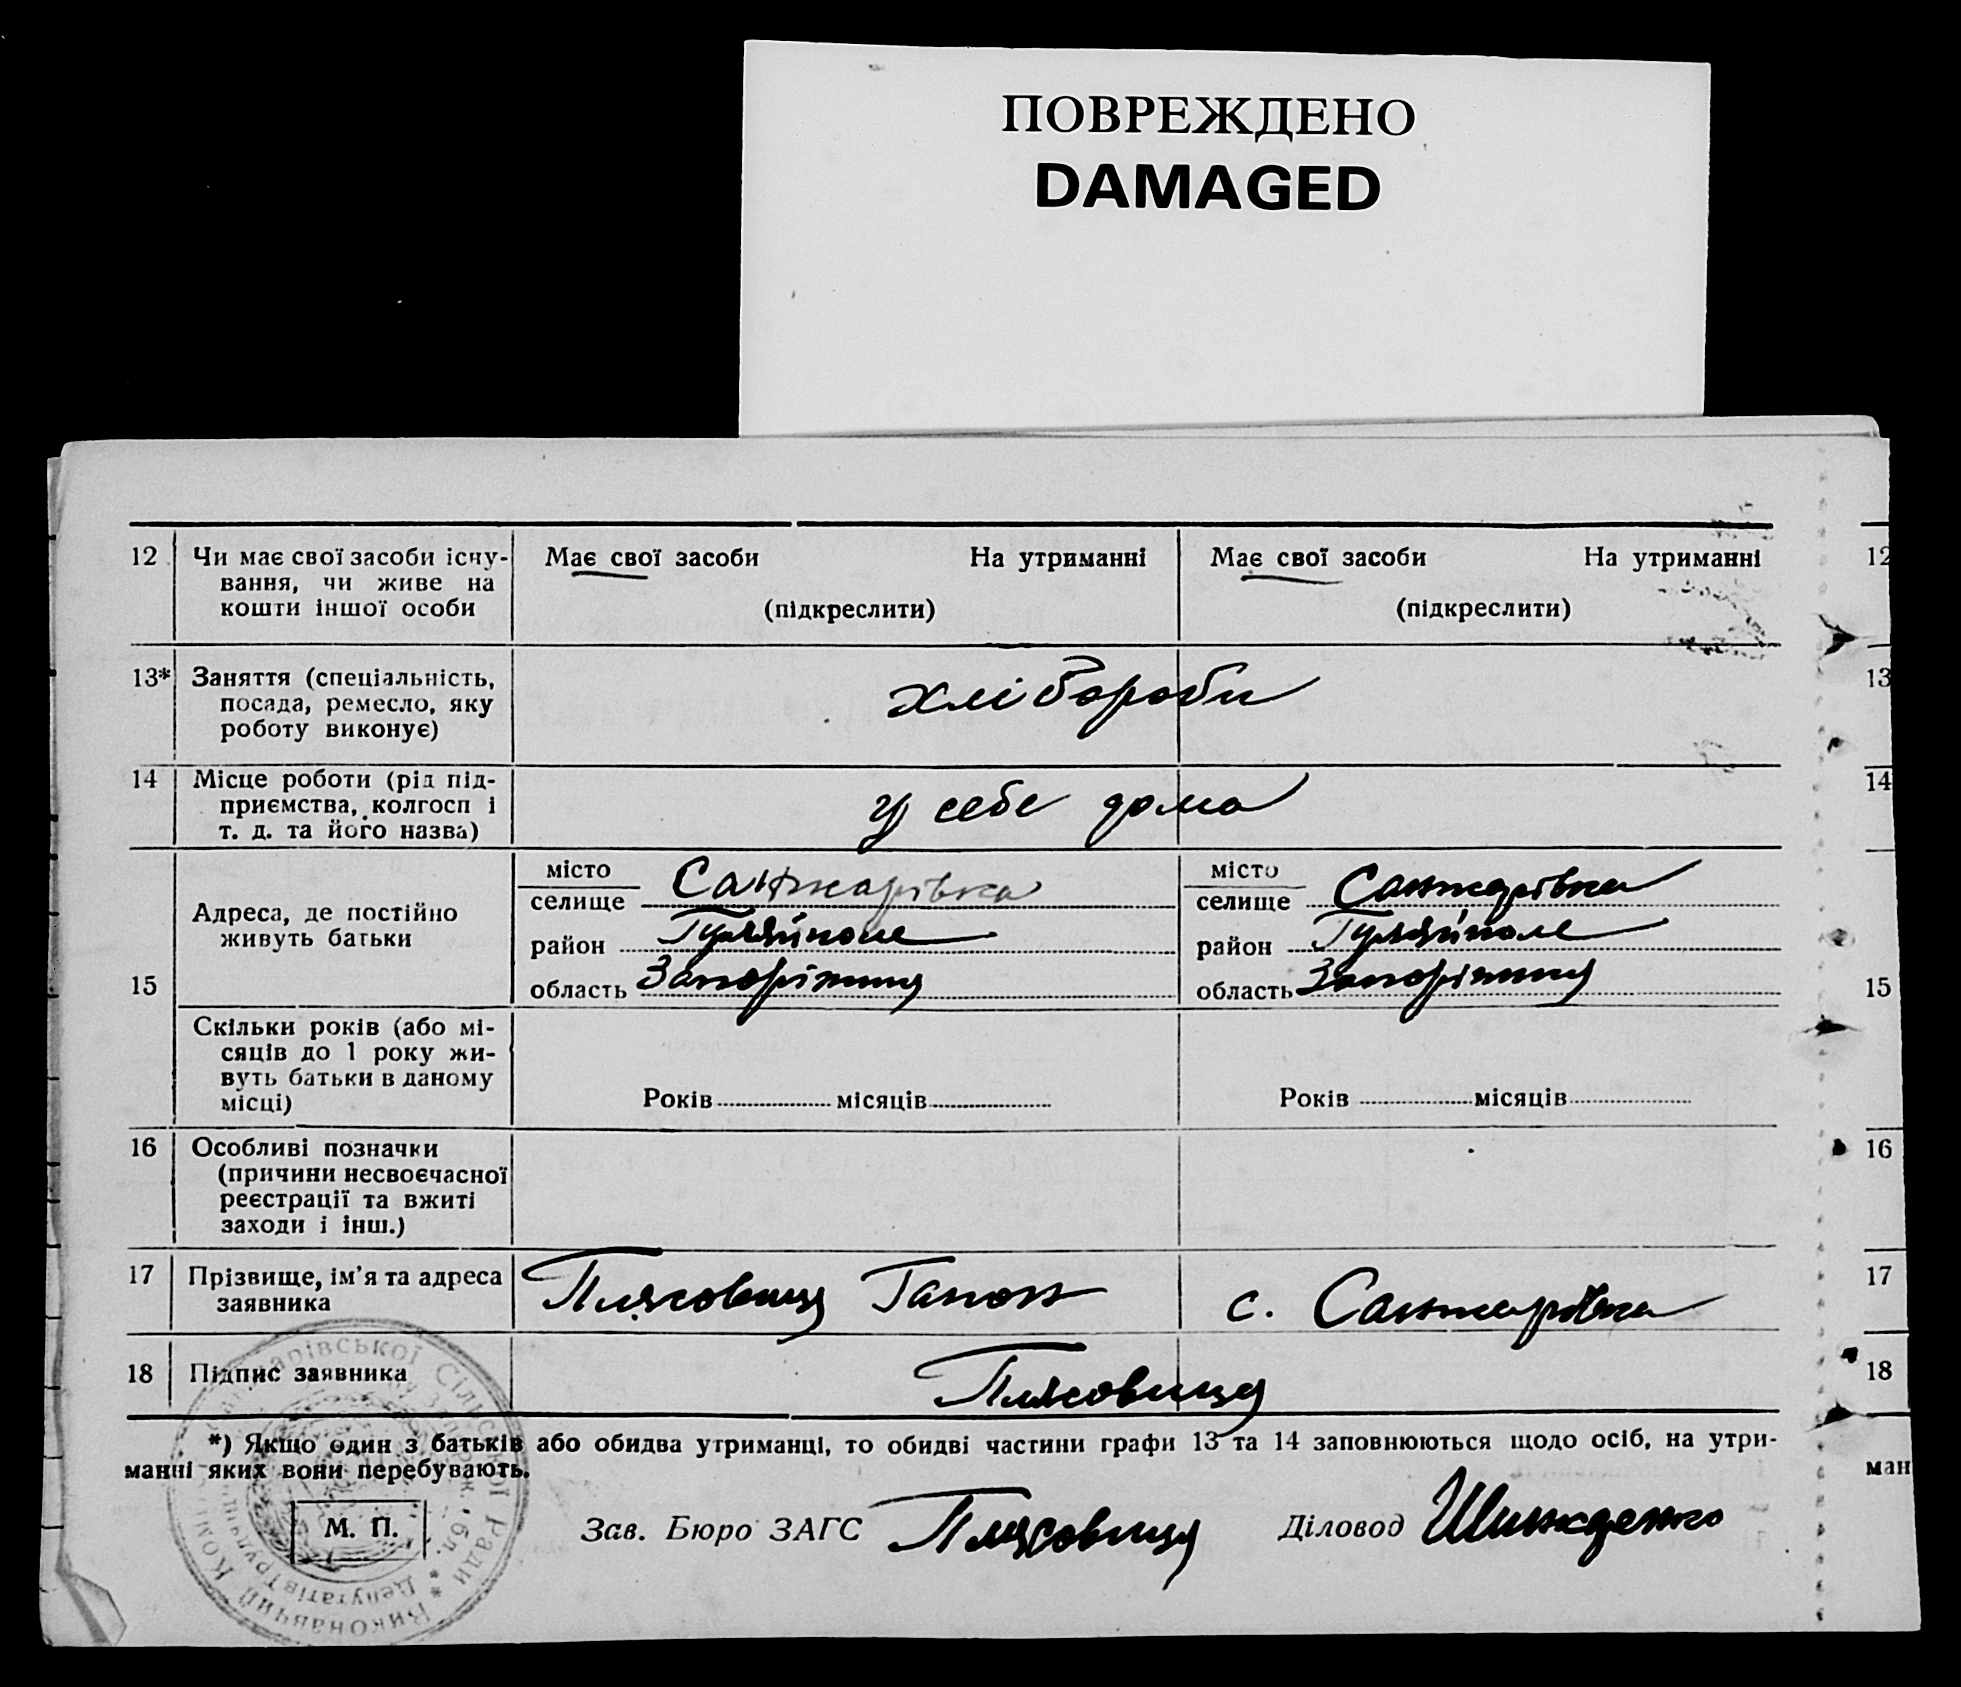 ПОВРЕЖДЕНО
DAMAGED
12 Чи має свої засоби існу- Має свої засоби На утриманні Має свої засоби На утриманні 12
вання, чи живе на
кошти іншої особи (підкреслити) (підкреслити)
13* Заняття (спеціальність, 13
посада, ремесло, яку хлібороби
роботу виконує)
14 Місце роботи (рід під- 14
приємства, колгосп і у себе дома
т. д. та його назва)
місто місто
селище Санжарівка селище Санжарівка
Адреса, де постійно
живуть батьки район Гуляйполе район Гуляйполе
15 область Запоріжжя область Запоріжжя 15
Скільки років (або мі-
сяців до 1 року жи-
вуть батьки в даному
місці) Років місяців Років місяців
16 Особливі позначки 16
(причини несвоєчасної
реєстрації та вжиті
заходи і інш.)
17 Прізвище, ім'я та адреса Гапон с. Санжарівка 17
заявника
18 Підпис заявника 18
*) Якщо один з батьків або обидва утриманці, то обидві частини графи 13 та 14 заповнюються щодо осіб, на утри-
манні яких вони перебувають. ман
М. П. Зав. Бюро ЗАГС Діловод
Сільської Ради * Виконавчий
Депутатів